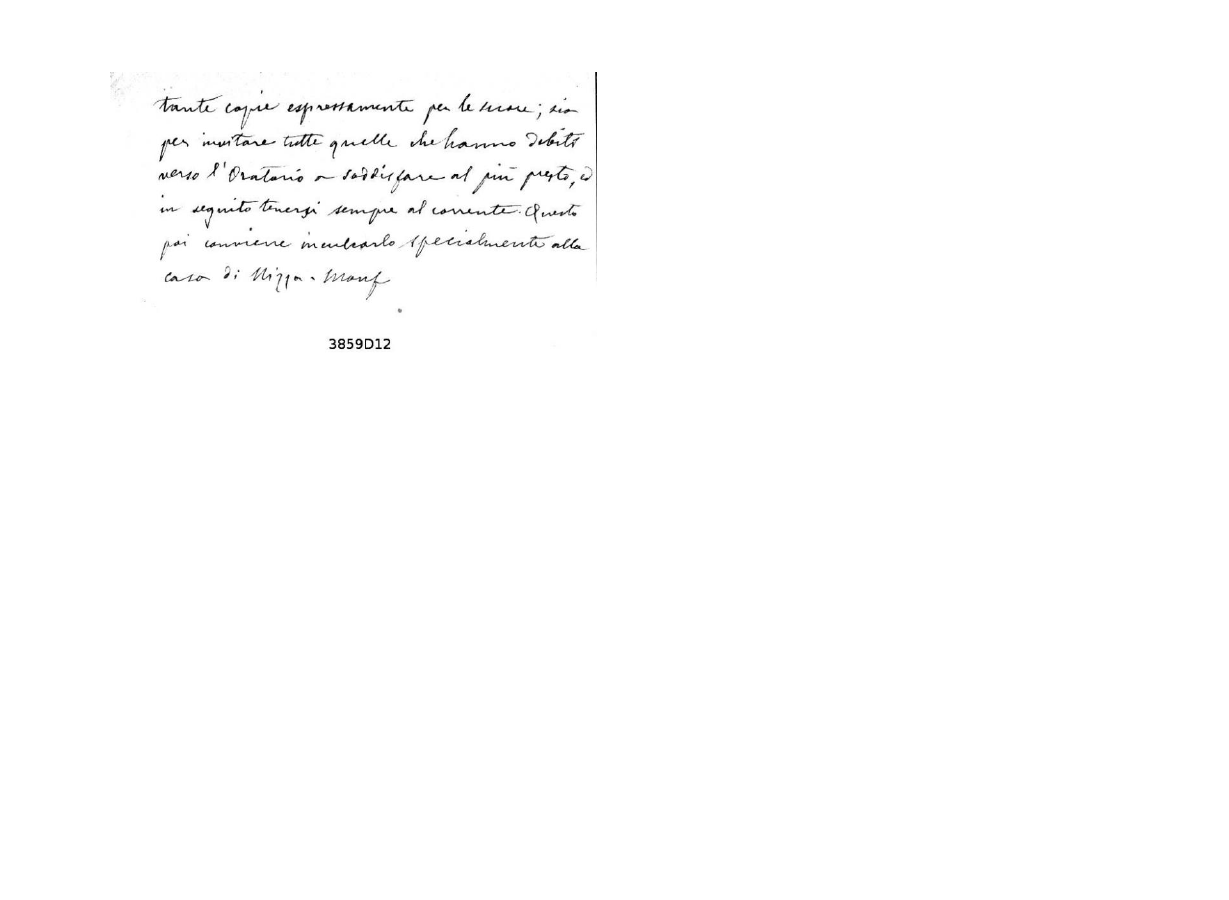 tante copie espressamente per le suore; sia
per invitare tutte quelle che hanno debiti
verso l'Oratorio a soddisfare al più presto, ed
in seguito tenersi sempre al corrente. Questo
poi conviene inculcarlo specialmente alla
casa di Nizza - Monf
3859D12